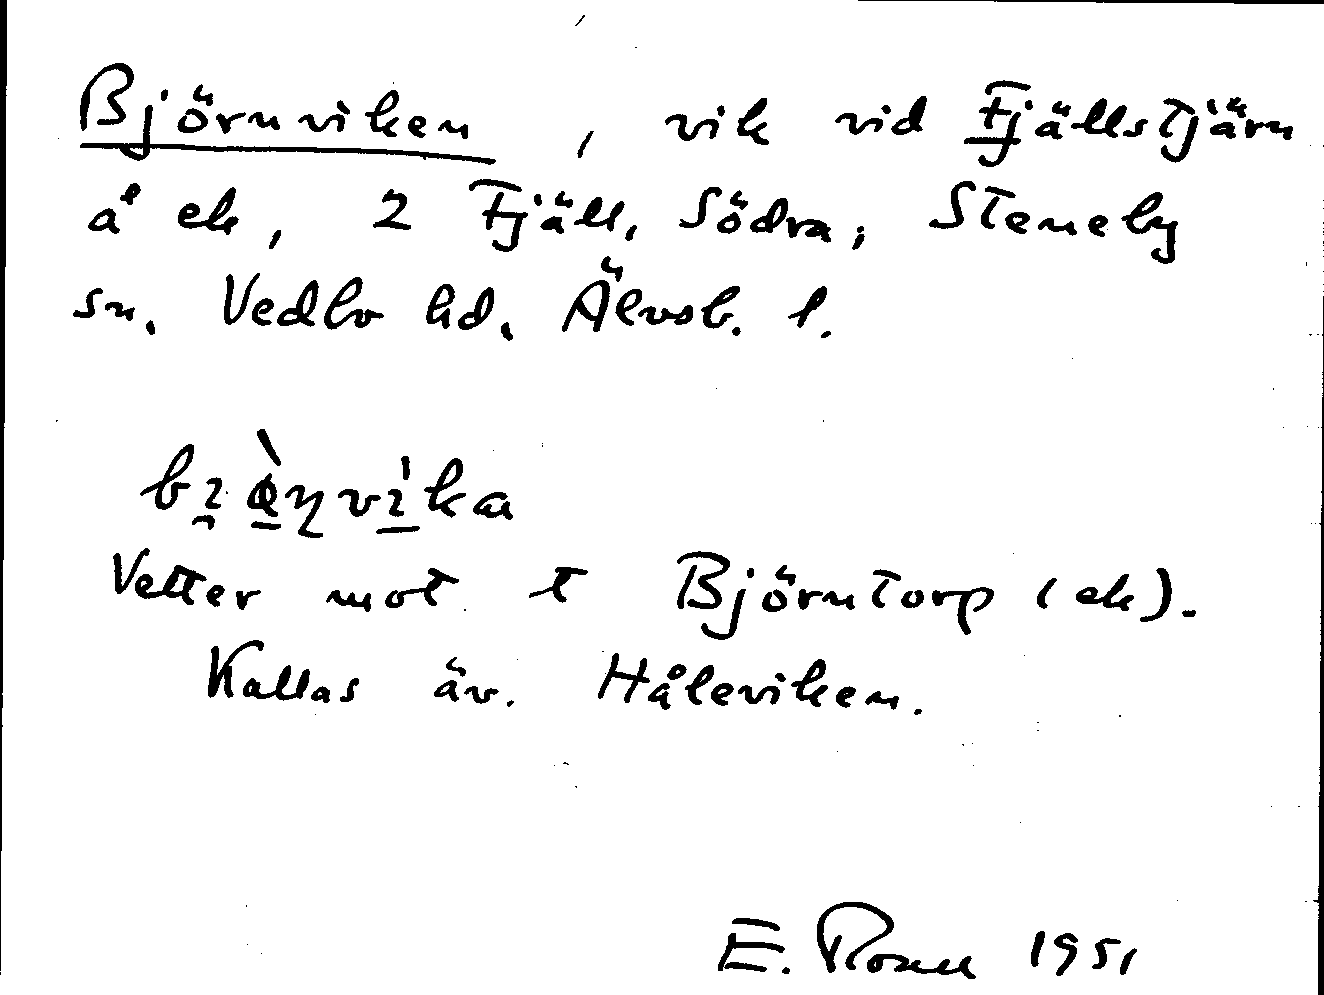 Björnviken, vik vid Fjällstjärn
å ek, 2 Fjäll, Södra, Steneby
sn. Vedbo hd. Älvsb. l.
Vetter mot t Björntorp (ek).
Kallas äv. Håleviken.
E. 1951